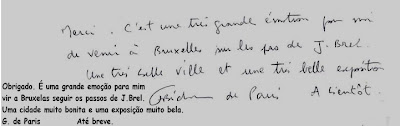 Merci. C'est une très grande émotion pour moi
de venir à Bruxelles sur les pas de J. Brel.
Une très belle ville et une très belle exposition
de Paris A bientôt.
Obrigado. É uma grande emoção para mim
vir a Bruxelas seguir os passos de J.Brel.
Uma cidade muito bonita e uma exposição muito bela.
G. de Paris Até breve.